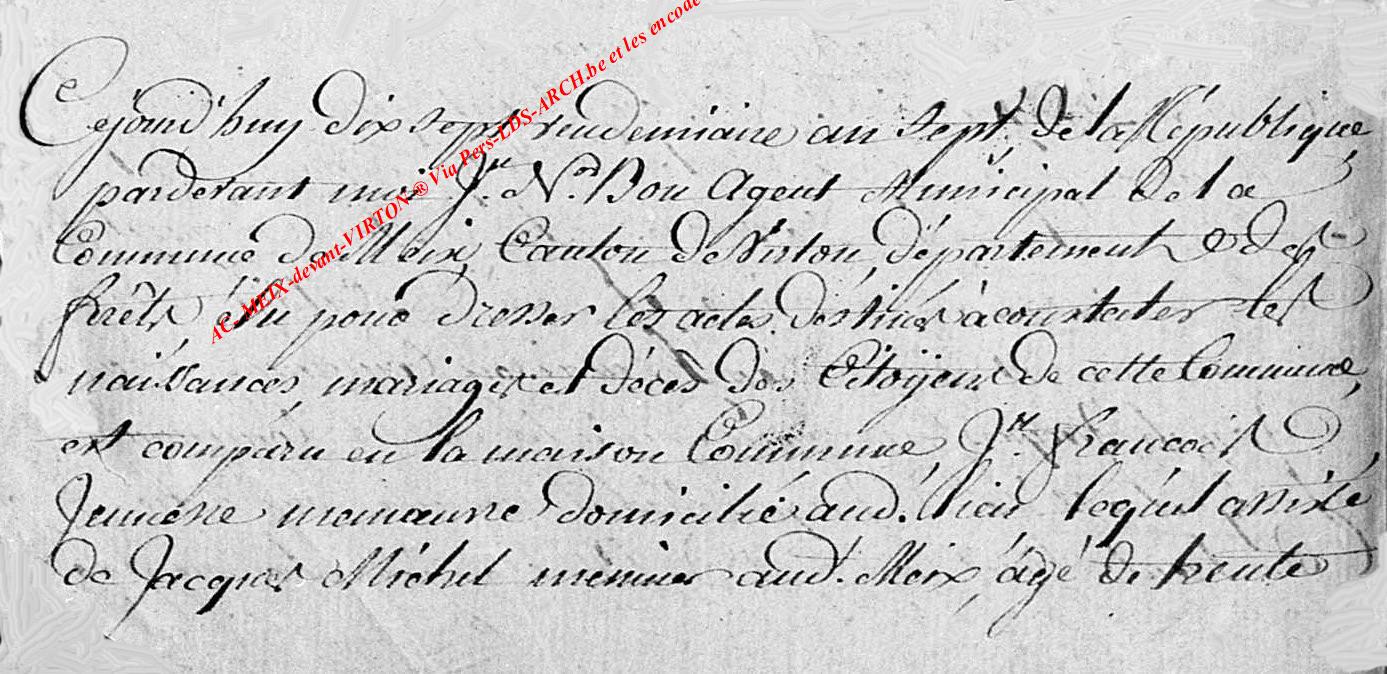 Cejourd'huy dix sept vendemiaire an sept de la République
pardevant moi Jn. Ns. Bon Agent Municipal de la
Commune de Meix Canton de Virton, département des
forêts élu pour dresser les actes destinés à constater les
naissances, mariages et décès des Citoyens de cette Commune,
est comparu en la maison Commune, Jn. francois
manœuvre domicilié aud. lieu lequel assisté
de Jacques Michel aud. Meix, âgé de trente
AC-MEIX-devant-VIRTON ® Via Pers-LDS-ARCH.be et les encode